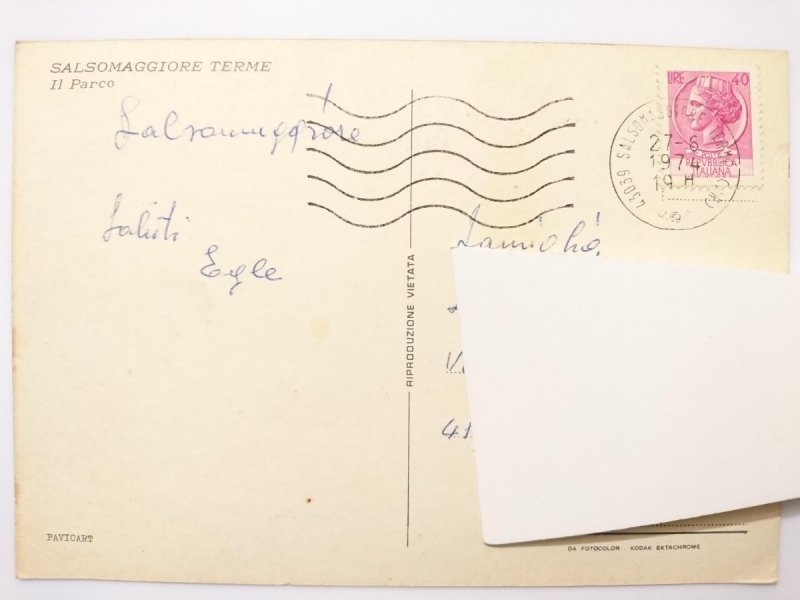 SALSOMAGGIORE TERME
Il Parco
Salsomaggiore
Saluti
Egle
LIRE 40
REPUBBLICA
ITALIANA
43039 SALSOMAGGIORE TERME (PR)
27-6
1974
19 H
RIPRODUZIONE VIETATA
V
41
PAVICART
DA FOTOCOLOR - KODAK EKTACHROME